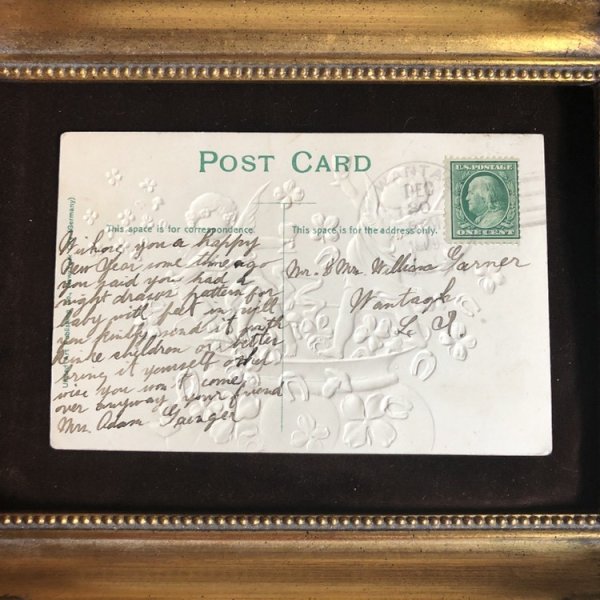 POST CARD
WANTA
DEC
30
U.S. POSTAGE
ONE CENT
This space is for correspondence.
This space is for the address only.
Wishing you a happy
New Year some time ago
you said you had a
night drawers pattern for
baby with feet in will
you kindly send it with
the children or better
bring it yourself other
wise you won't come
over anyway your friend
Mrs. Adam
Mr. & Mrs. William Garner
Wantagh
L. I.
Germany)